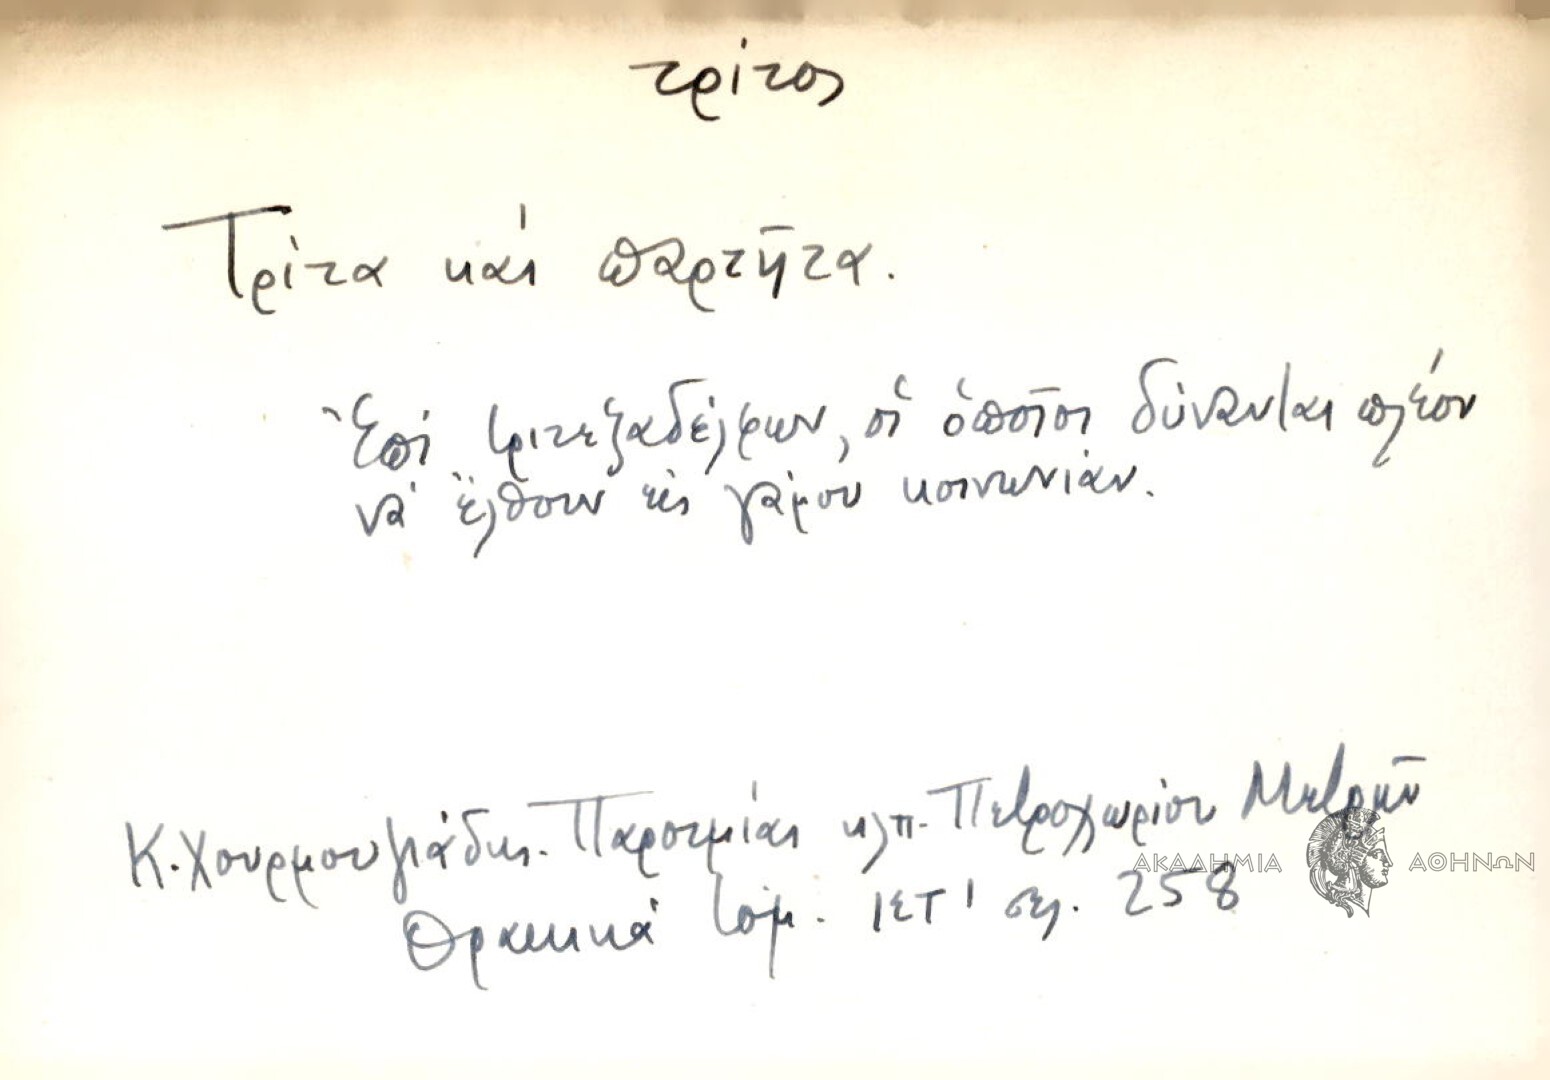 τρίτος
Τρίτα καὶ παρτῆτα.
Ἐπὶ τριτεξαδέλφων, οἱ ὁποῖοι δύνανται πλέον
νὰ ἔλθουν εἰς γάμου κοινωνίαν.
Κ. Χουρμουζιάδης. Παροιμίαι κλπ. Πετροχωρίου Μετρῶν
Θρακικὰ τόμ. ΙΣΤ' σελ. 258
ΑΚΑΔΗΜΙΑ ΑΘΗΝΩΝ